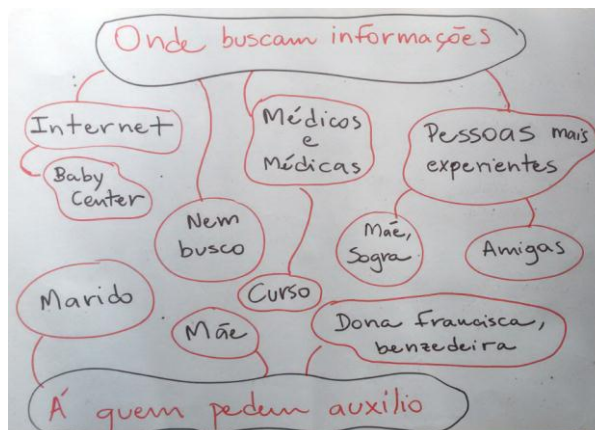 Onde buscam informações
Internet
Baby
Center
Nem
busco
Médicos
e
Médicas
Curso
Pessoas mais
experientes
Mãe,
Sogra
Amigas
Marido
Mãe
Dona Francisca,
benzedeira
Á quem pedem auxílio